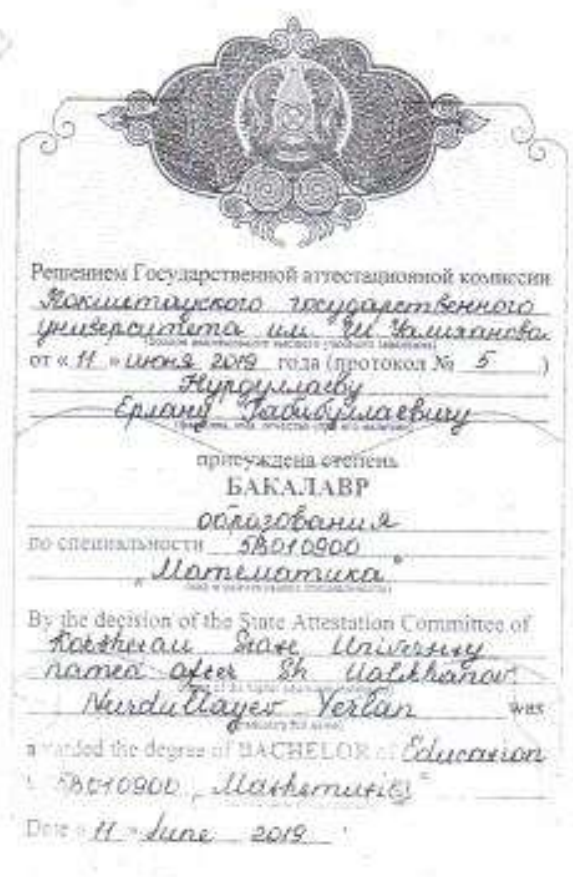 Решением Государственной аттестационной комиссии
Кокшетауского государственного
университета им Ш Уалиханова
(полное наименование высшего учебного заведения)
от « 11 » июня 2019 года (протокол № 5 )
Нурдуллаеву
Ерлану Габибуллаевичу
присуждена степень
БАКАЛАВР
образования
по специальности 5В010900
„Математика"
By the decision of the State Attestation Committee of
Kokshetau State University
named after Sh Ualikhanov
Nurdullayev Yerlan was
awarded the degree of BACHELOR of Education
5B010900 „Mathematics"
Date « 11 » June 2019